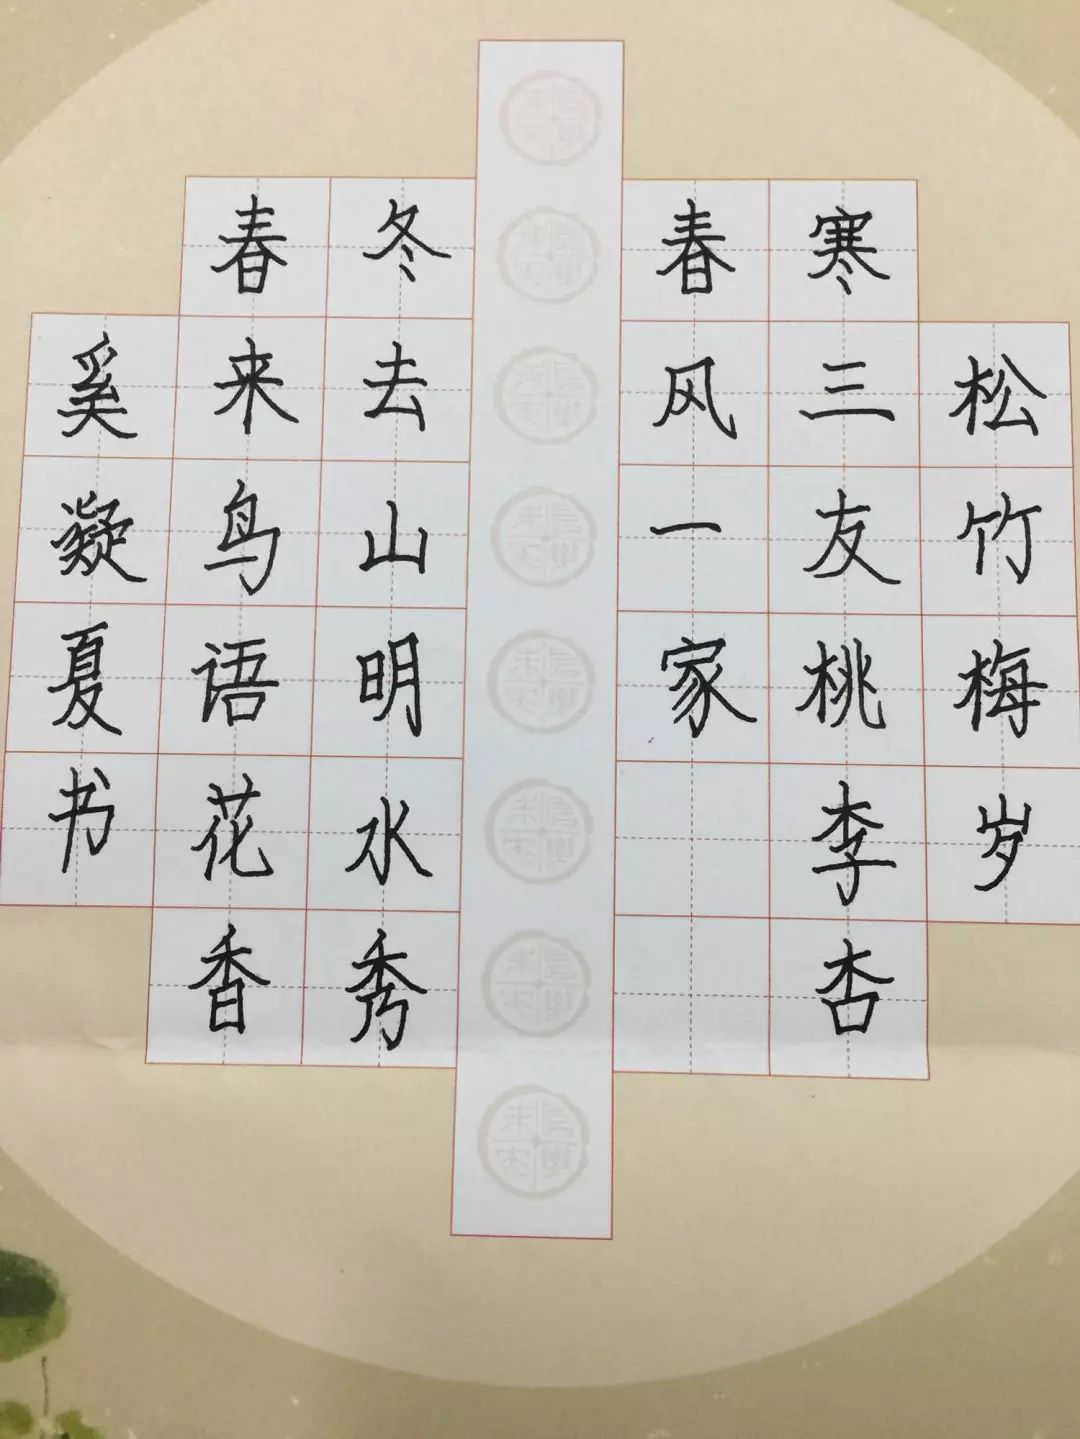 松竹梅岁
寒三友桃李杏
春风一家
冬去山明水秀
春来鸟语花香
奚凝夏书